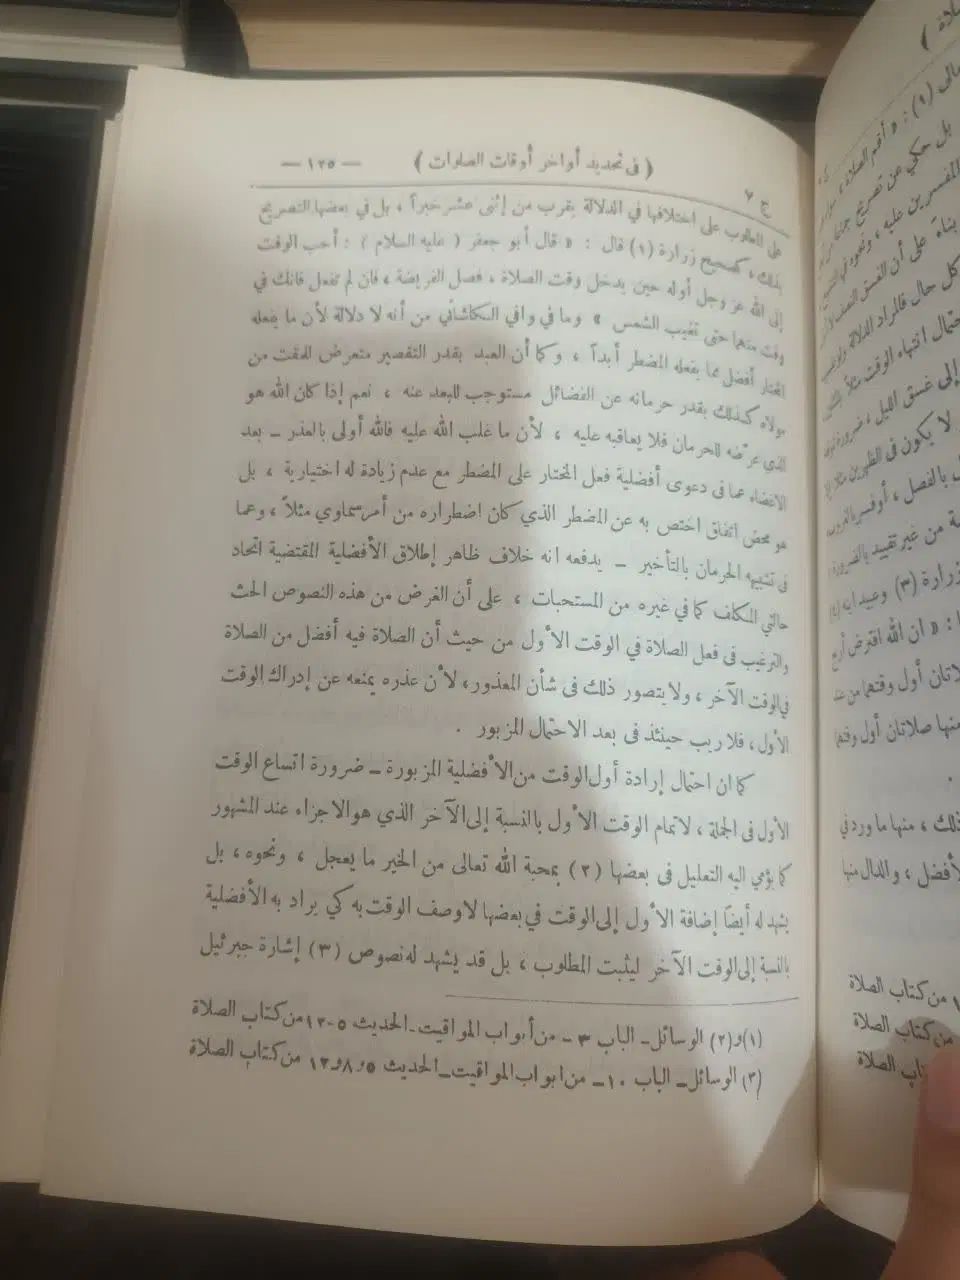 ج ٧
( فى تحديد أواخر أوقات الصلوات )
— ١٢٥ —
على المطلوب على اختلافها في الدلالة يقرب من إثنى عشر خبراً ، بل في بعضها التصريح
بذلك ، كصحيح زرارة (١) قال : « قال أبو جعفر ( عليه السلام ) : أحب الوقت
إلى الله عز وجل أوله حين يدخل وقت الصلاة ، فصل الفريضة ، فان لم تفعل فانك في
وقت منهما حتى تغيب الشمس » وما في وافي الكاشاني من أنه لا دلالة لأن ما يفعله
المختار أفضل مما يفعله المضطر أبداً ، وكما أن العبد بقدر التقصير متعرض للمقت من
مولاه كذلك بقدر حرمانه عن الفضائل مستوجب للبعد عنه ، نعم إذا كان الله هو
الذي عرّضه للحرمان فلا يعاقبه عليه ، لأن ما غلب الله عليه فالله أولى بالعذر ــ بعد
الاغضاء عما فى دعوى أفضلية فعل المختار على المضطر مع عدم زيادة له اختيارية ، بل
هو محض اتفاق اختص به عن المضطر الذي كان اضطراره من أمر سماوي مثلاً ، وعما
فى تشبيهه الحرمان بالتأخير ــ يدفعه انه خلاف ظاهر إطلاق الأفضلية المقتضية اتحاد
حالتي المكلف كما في غيره من المستحبات ، على أن الغرض من هذه النصوص الحث
والترغيب فى فعل الصلاة في الوقت الأول من حيث أن الصلاة فيه أفضل من الصلاة
في الوقت الآخر ، ولا يتصور ذلك فى شأن المعذور ، لأن عذره يمنعه عن إدراك الوقت
الأول ، فلا ريب حينئذ فى بعد الاحتمال المزبور .
كما ان احتمال إرادة أول الوقت من الأفضلية المزبورة ــ ضرورة اتساع الوقت
الأول فى الجملة ، لا تمام الوقت الأول بالنسبة إلى الآخر الذي هو الاجزاء عند المشهور
كما يؤمي اليه التعليل فى بعضها (٢) بمحبة الله تعالى من الخير ما يعجل ، ونحوه ، بل
يشهد له أيضاً إضافة الأول إلى الوقت في بعضها لا وصف الوقت به كي يراد به الأفضلية
بالنسبة إلى الوقت الآخر ليثبت المطلوب ، بل قد يشهد له نصوص (٣) إشارة جبرئيل
(١) و(٢) الوسائل ــ الباب ٣ ــ من أبواب المواقيت ــ الحديث ٥ - ١٢ من كتاب الصلاة
(٣) الوسائل ــ الباب ١٠ ــ من ابواب المواقيت ــ الحديث ٥ و ٨ و ١٢ من كتاب الصلاة